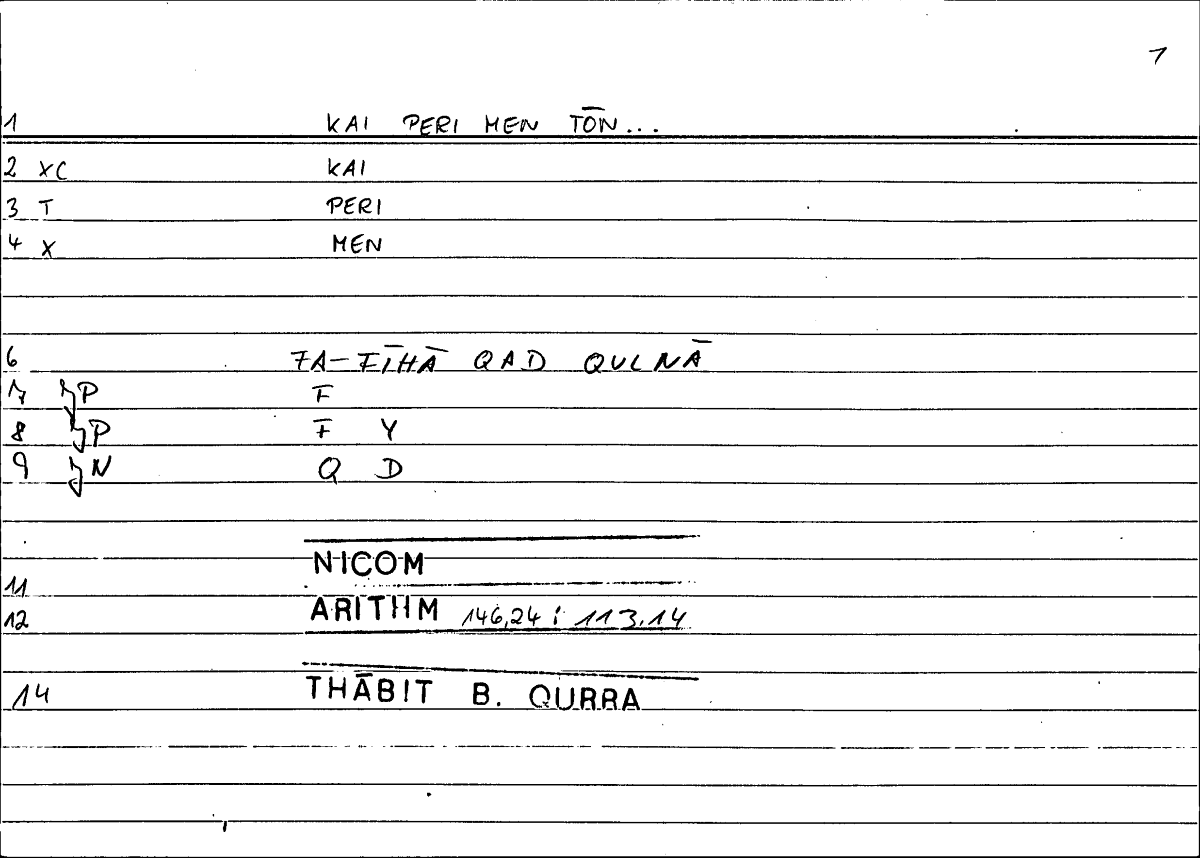 1
1 KAI PERI MEN TŌN...
2 XC KAI
3 T PERI
4 X MEN
6 FA-FĪHĀ QAD QULNĀ
7 P F
8 P F Y
9 N Q D
NICOM
11
12 ARITHM 146,24 ; 113,14
14 THĀBIT B. QURRA